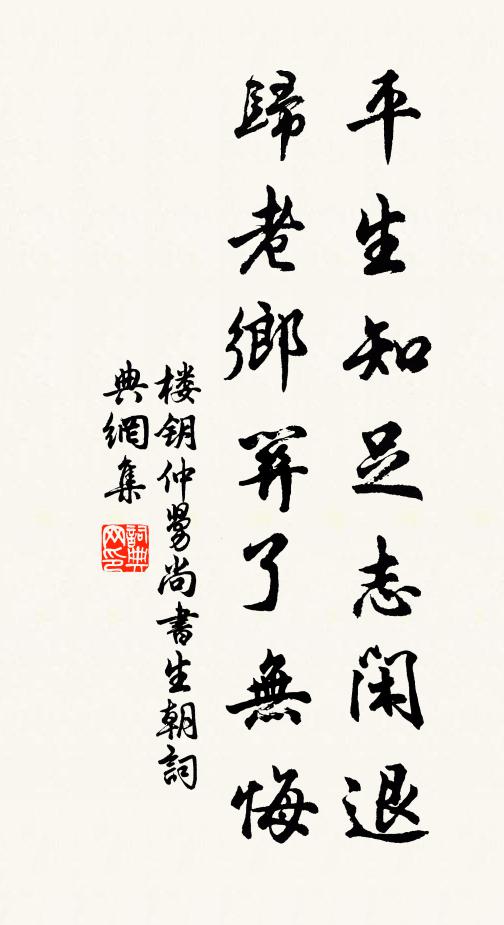 平生知足志閑退
歸老鄉關了無悔
楼钥仲舅尚書生朝詞
典網集
詞典
网印